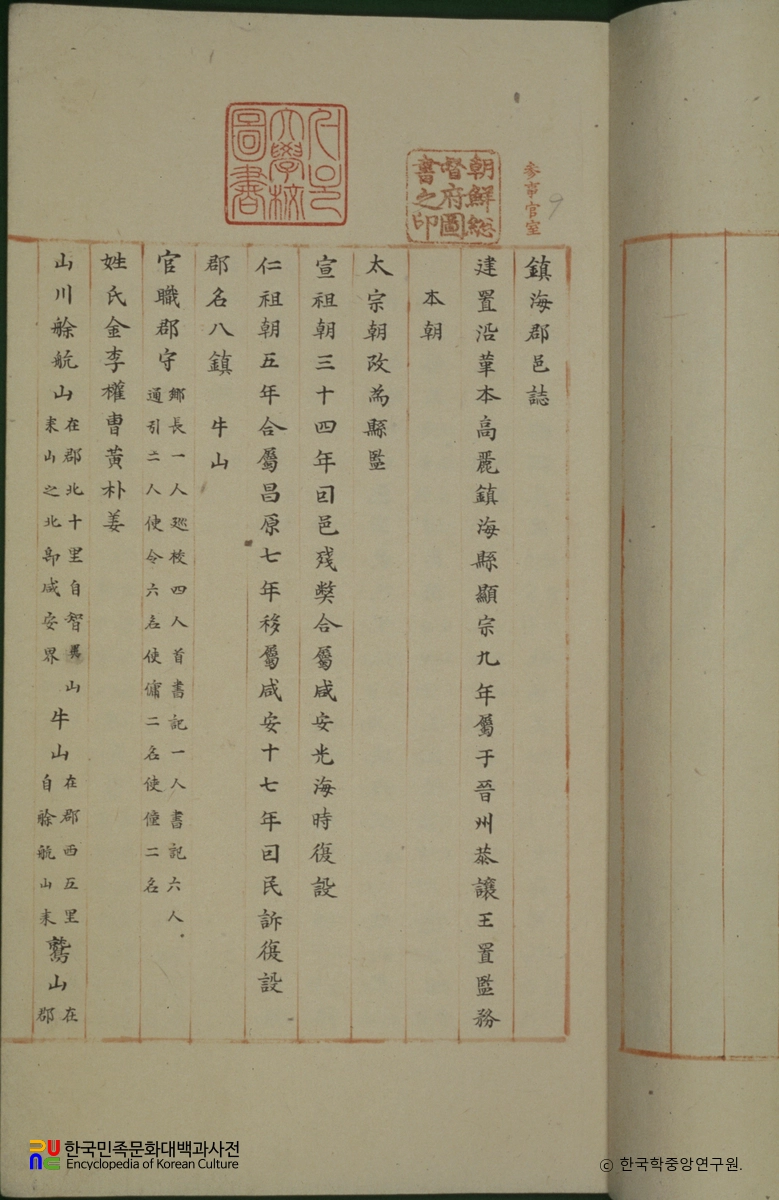 參事官室
9
朝鮮総
督府圖
書之印
大學校
圖書
鎮海郡邑誌
建置沿革本高麗鎮海縣顯宗九年屬于晉州恭讓王置監務
本朝
太宗朝改為縣監
宣祖朝三十四年囙邑殘獘合屬咸安光海時復設
仁祖朝五年合屬昌原七年移屬咸安十七年囙民訴復設
郡名八鎮 牛山
官職郡守鄕長一人廵校四人首書記一人書記六人
通引二人使令六名使傭二名使僮二名
姓氏金李權曺黃朴姜
山川艅航山在郡北十里自智異山
来山之北卽咸安界
牛山在郡西五里
自艅航山来
鷲山在
郡
한국민족문화대백과사전
Encyclopedia of Korean Culture
ⓒ 한국학중앙연구원.